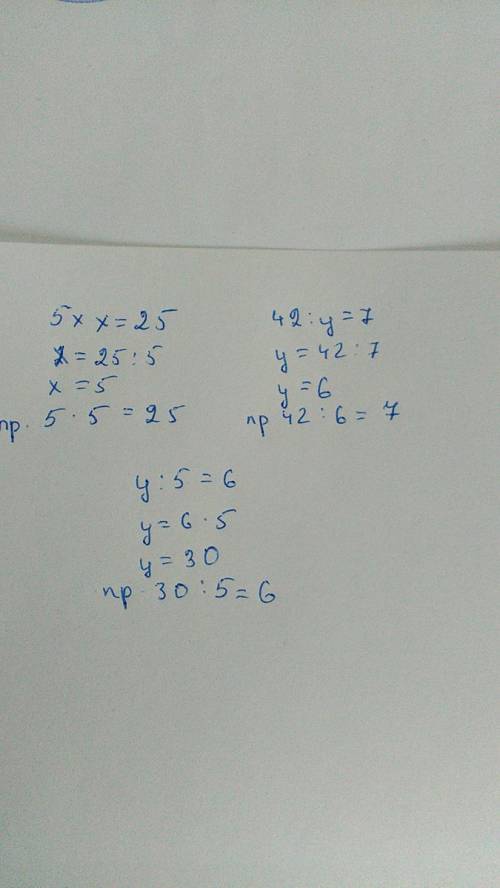 5 x x = 25
x = 25 : 5
x = 5
пр. 5 · 5 = 25
42 : y = 7
y = 42 : 7
y = 6
пр 42 : 6 = 7
y : 5 = 6
y = 6 · 5
y = 30
пр. 30 : 5 = 6